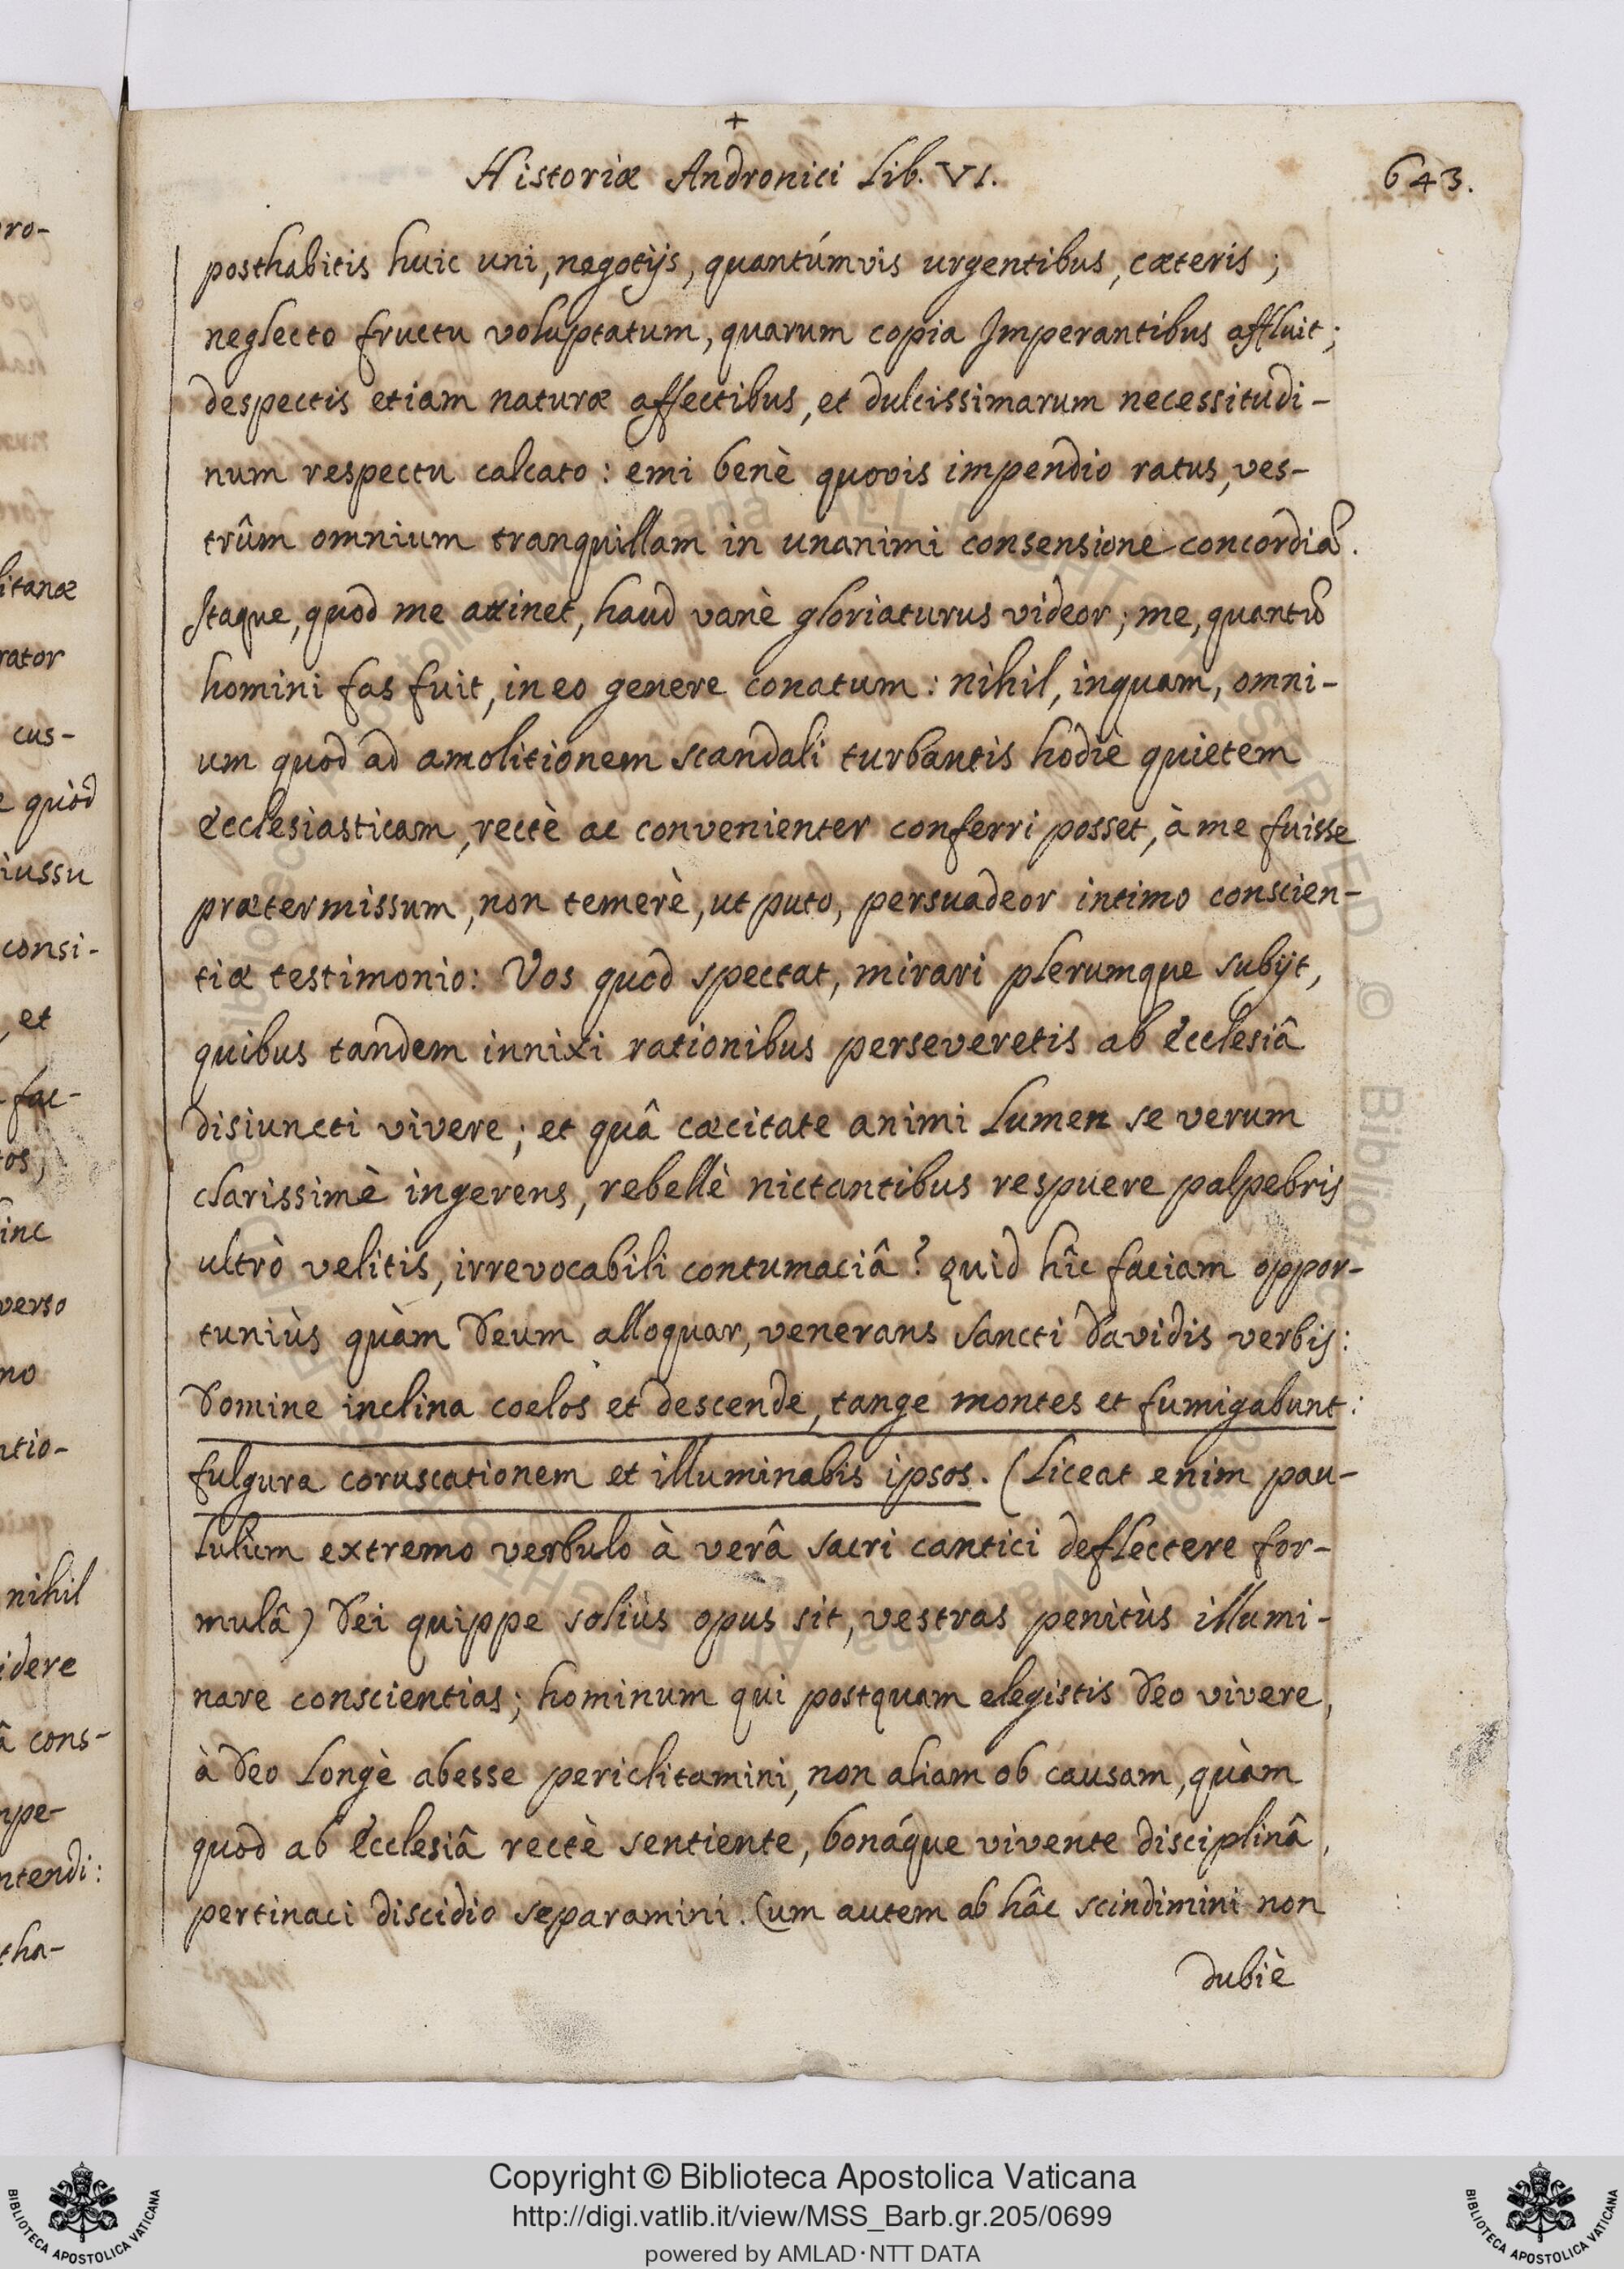 +
Historiæ Andronici Lib. VI.
643.
posthabitis huic uni, negotijs, quantúmvis urgentibus, cæteris;
neglecto fructu voluptatum, quarum copia Imperantibus affluit;
despectis etiam naturæ affectibus, et dulcissimarum necessitudi-
num respectu calcato: emi benè quovis impendio ratus, ves-
trûm omnium tranquillam in unanimi consensione concordiã.
Itaque, quod me attinet, haud vanè gloriaturus videor; me, quantũ
homini fas fuit, in eo genere conatum: nihil, inquam, omni-
um quod ad amolitionem scandali turbantis hodie quietem
Ecclesiasticam, rectè ac convenienter conferri posset, à me fuisse
prætermissum, non temerè, ut puto, persuadeor intimo conscien-
tiæ testimonio: Vos quod spectat, mirari plerumque subijt,
quibus tandem innixi rationibus perseveretis ab Ecclesiâ
disiuncti vivere; et quâ cæcitate animi Lumen se verum
clarissimè ingerens, rebellè nictantibus respuere palpebris
ultrò velitis, irrevocabili contumaciâ? quid hîc faciam oppor-
tuniùs quàm Deum alloquar, venerans Sancti Davidis verbis:
Domine inclina coelos et descende, tange montes et fumigabunt:
fulgura coruscationem et illuminabis ipsos. (Liceat enim pau-
lulum extremo verbulo à verâ sacri cantici deflectere for-
mulâ) Dei quippe solius opus sit, vestras penitùs illumi-
nare conscientias; hominum qui postquam elegistis Deo vivere,
à Deo Longè abesse periclitamini, non aliam ob causam, quàm
quod ab Ecclesiâ rectè sentiente, bonáque vivente disciplinâ,
pertinaci discidio separamini. Cum autem ab hâc scindimini non
dubiè
ro-
litanæ
rator
cus-
e quòd
iussu
consi-
, et
fac-
tos;
inc
verso
no
ntio-
nihil
idere
â cons-
mpe-
ntendi:
tha-
Copyright © Biblioteca Apostolica Vaticana
http://digi.vatlib.it/view/MSS_Barb.gr.205/0699
powered by AMLAD·NTT DATA
BIBLIOTECA APOSTOLICA VATICANA
BIBLIOTECA APOSTOLICA VATICANA